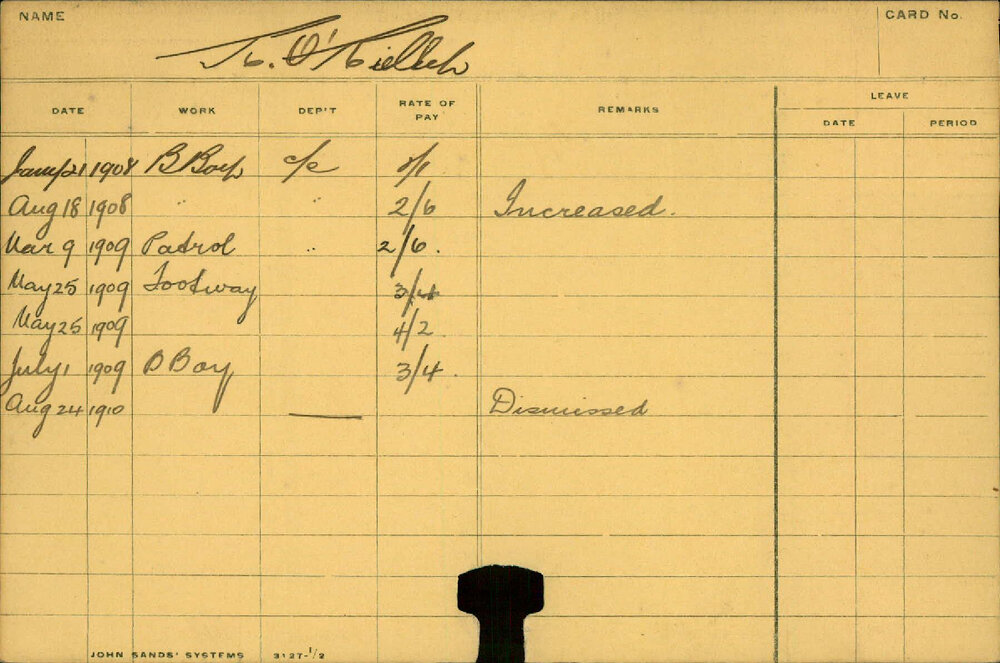 NAME
CARD No.
DATE WORK DEP'T RATE OF PAY REMARKS LEAVE
DATE PERIOD
1908 B Boy c/e
Aug 18 1908 " " 2/6 Increased.
Mar 9 1909 Patrol " 2/6.
May 25 1909 Footway 3/4
May 25 1909 4/2
July 1 1909 B Boy 3/4.
Aug 24 1910 — Dismissed
JOHN SANDS' SYSTEMS 3127-1/2